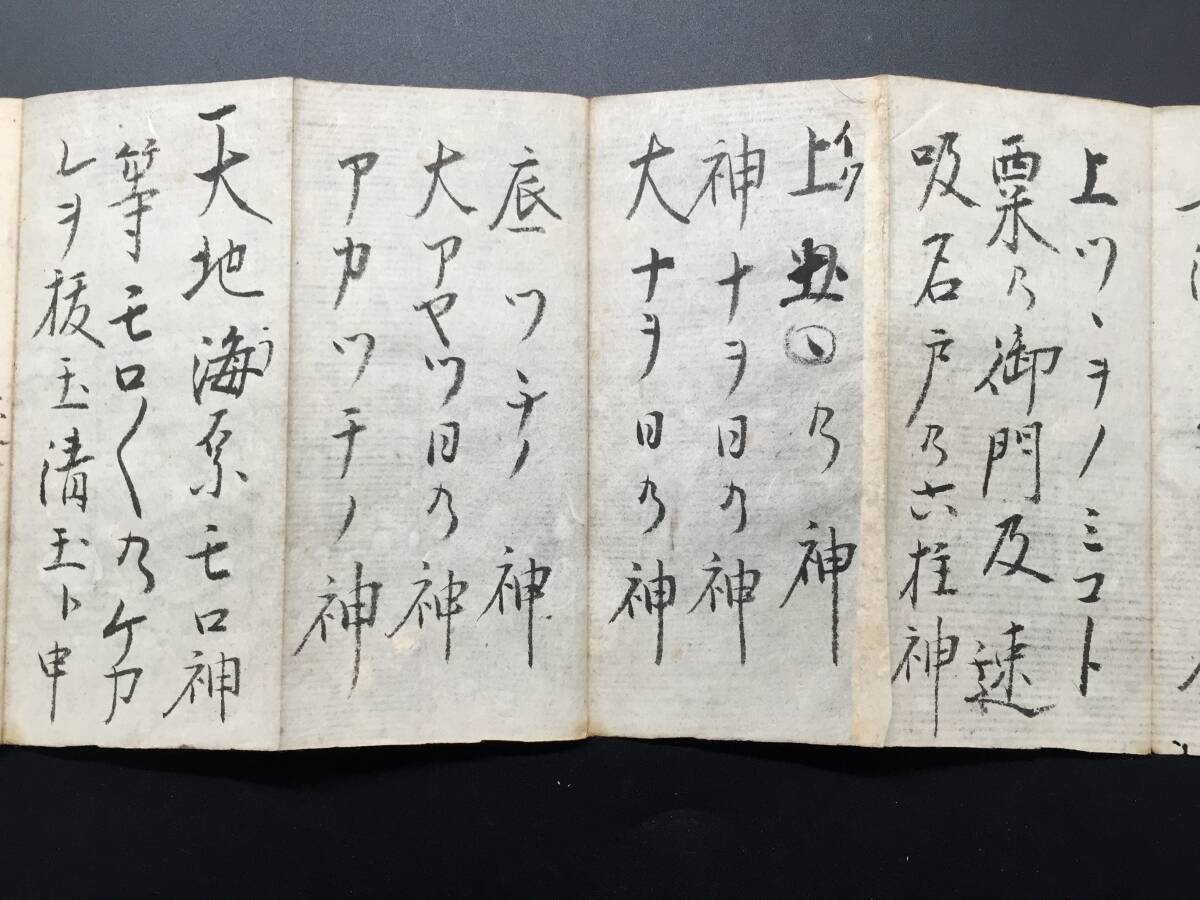 上ツヽヲノミコト
粟乃御門及速
吸名戸乃六柱神
上 乃神
神ナヲ日乃神
大ナヲ日乃神
底ツチノ神
大アヤツ日乃神
アカツチノ神
天地海原モロ神
等モロ〱乃ケカ
レヲ抜玉清玉ト申